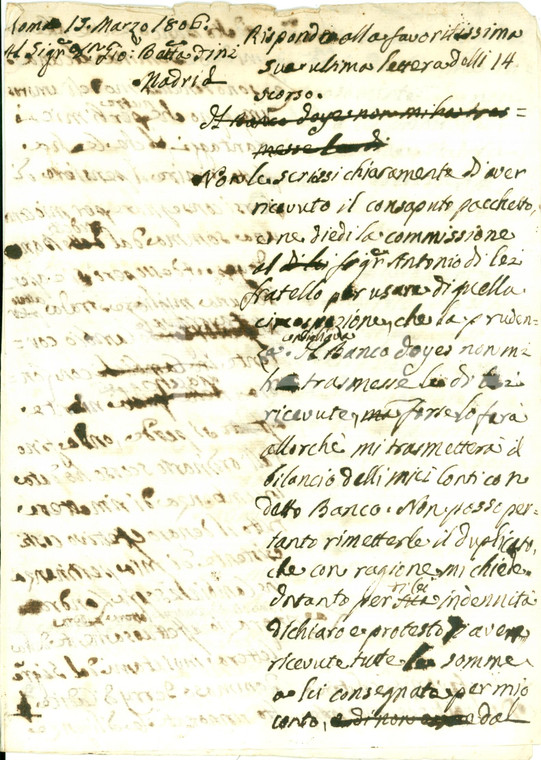 Roma 15. Marzo 1806.
Al Sigr Gio: Batta Dini
Madrid
Rispondo alla favoritissima
sua ultima lettera delli 14
scorso.
Il Banco Joyes non mi ha tras=
messe le di
Non le scrissi chiaramente d'aver
ricevuto il consaputo pacchetto,
e ne diedi la commissione
al di lei sigr Antonio di lei
fratello per usare di quella
circospezione, che la pruden=
za. Il Banco Joyes non mi
ha trasmesse le di lei
ricevute, ma forse lo farà
allorchè mi trasmetterà il
bilancio delli miei Conti con
detto Banco. Non posso per=
tanto rimetterle il duplicato,
che con ragione mi chiede.
Intanto per sua di lei indennità
dichiaro e protesto d'aver
ricevute tutte le somme
a lei consegnate per mio
conto, e di non dal